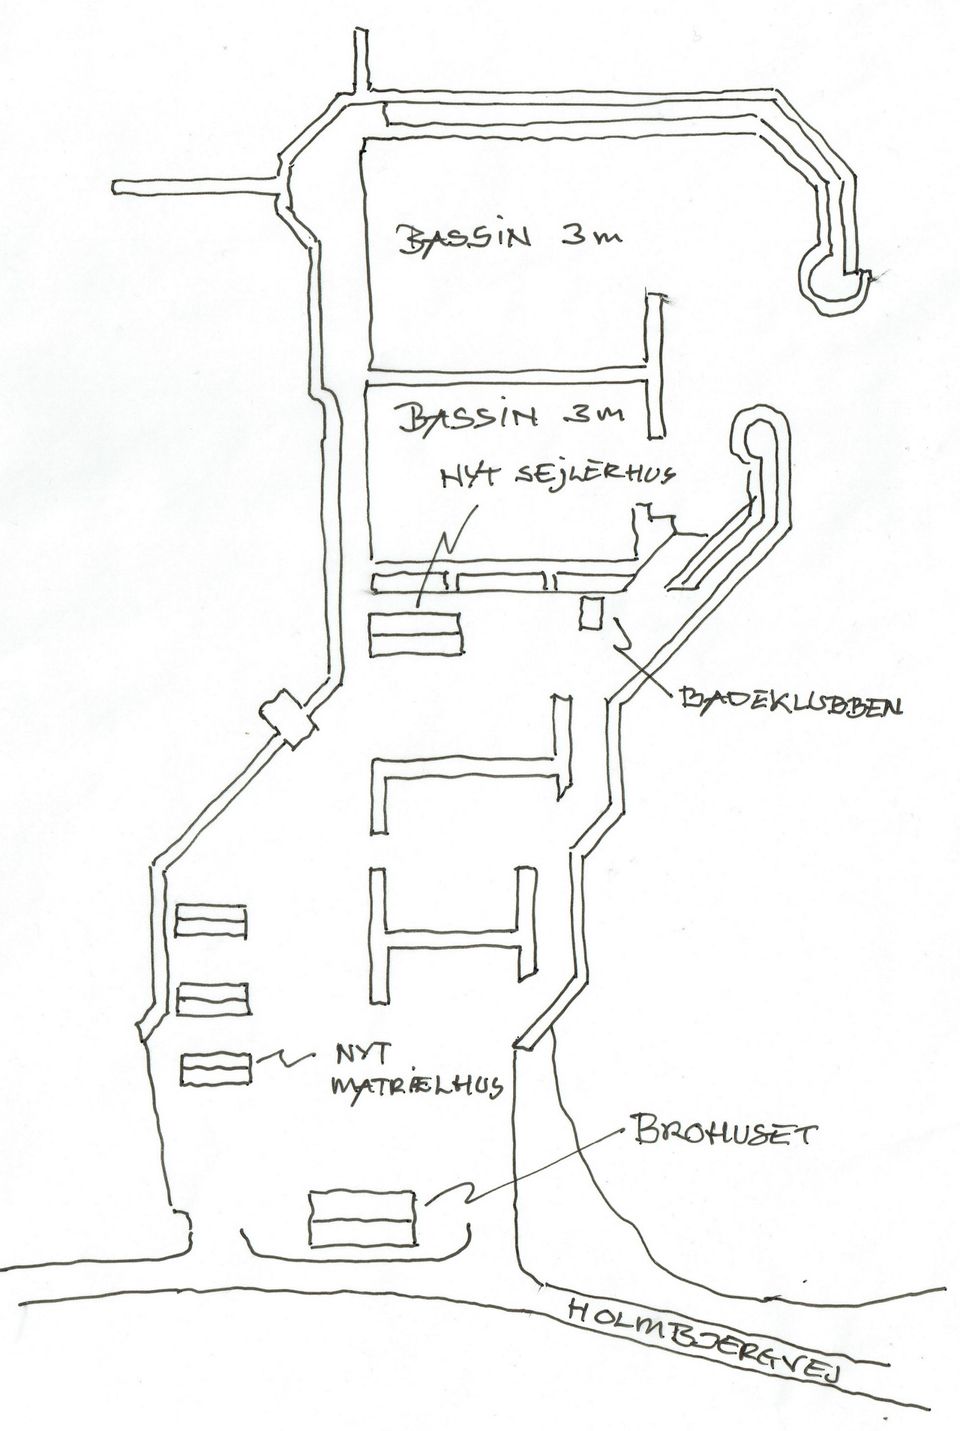 BASSIN 3m
BASSIN 3m
NYT SEJLERHUS
BADEKLUBBEN
NYT
MATRIELHUS
BROHUSET
HOLMBJERGVEJ